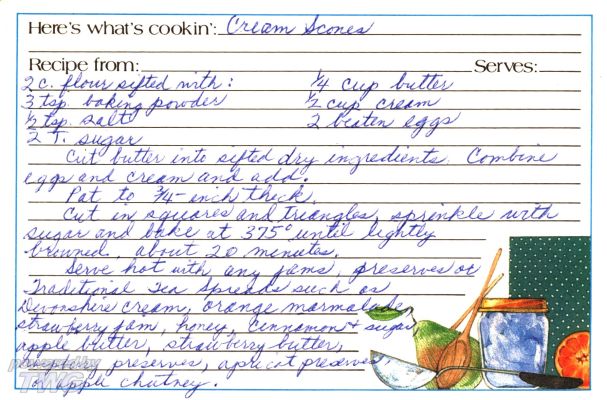 Here's what's cookin': Cream Scones
Recipe from: Serves:
2 c. flour sifted with: 1/4 cup butter
3 tsp. baking powder 1/2 cup cream
1/2 tsp. salt 2 beaten eggs
2 T. sugar
Cut butter into sifted dry ingredients. Combine
eggs and cream and add.
Pat to 3/4-inch thick.
Cut in squares and triangles, sprinkle with
sugar and bake at 375° until lightly
browned, about 20 minutes.
Serve hot with any jams, preserves or
Traditional Tea Spreads such as
Devonshire cream, orange marmalade,
strawberry jam, honey, cinnamon & sugar,
apple butter, strawberry butter,
preserves, apricot preserves,
or apple chutney.
powered by
TWG